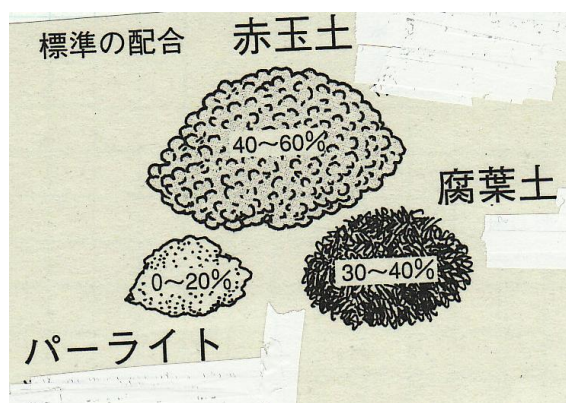 標準の配合
赤玉土
40～60%
腐葉土
30～40%
0～20%
パーライト